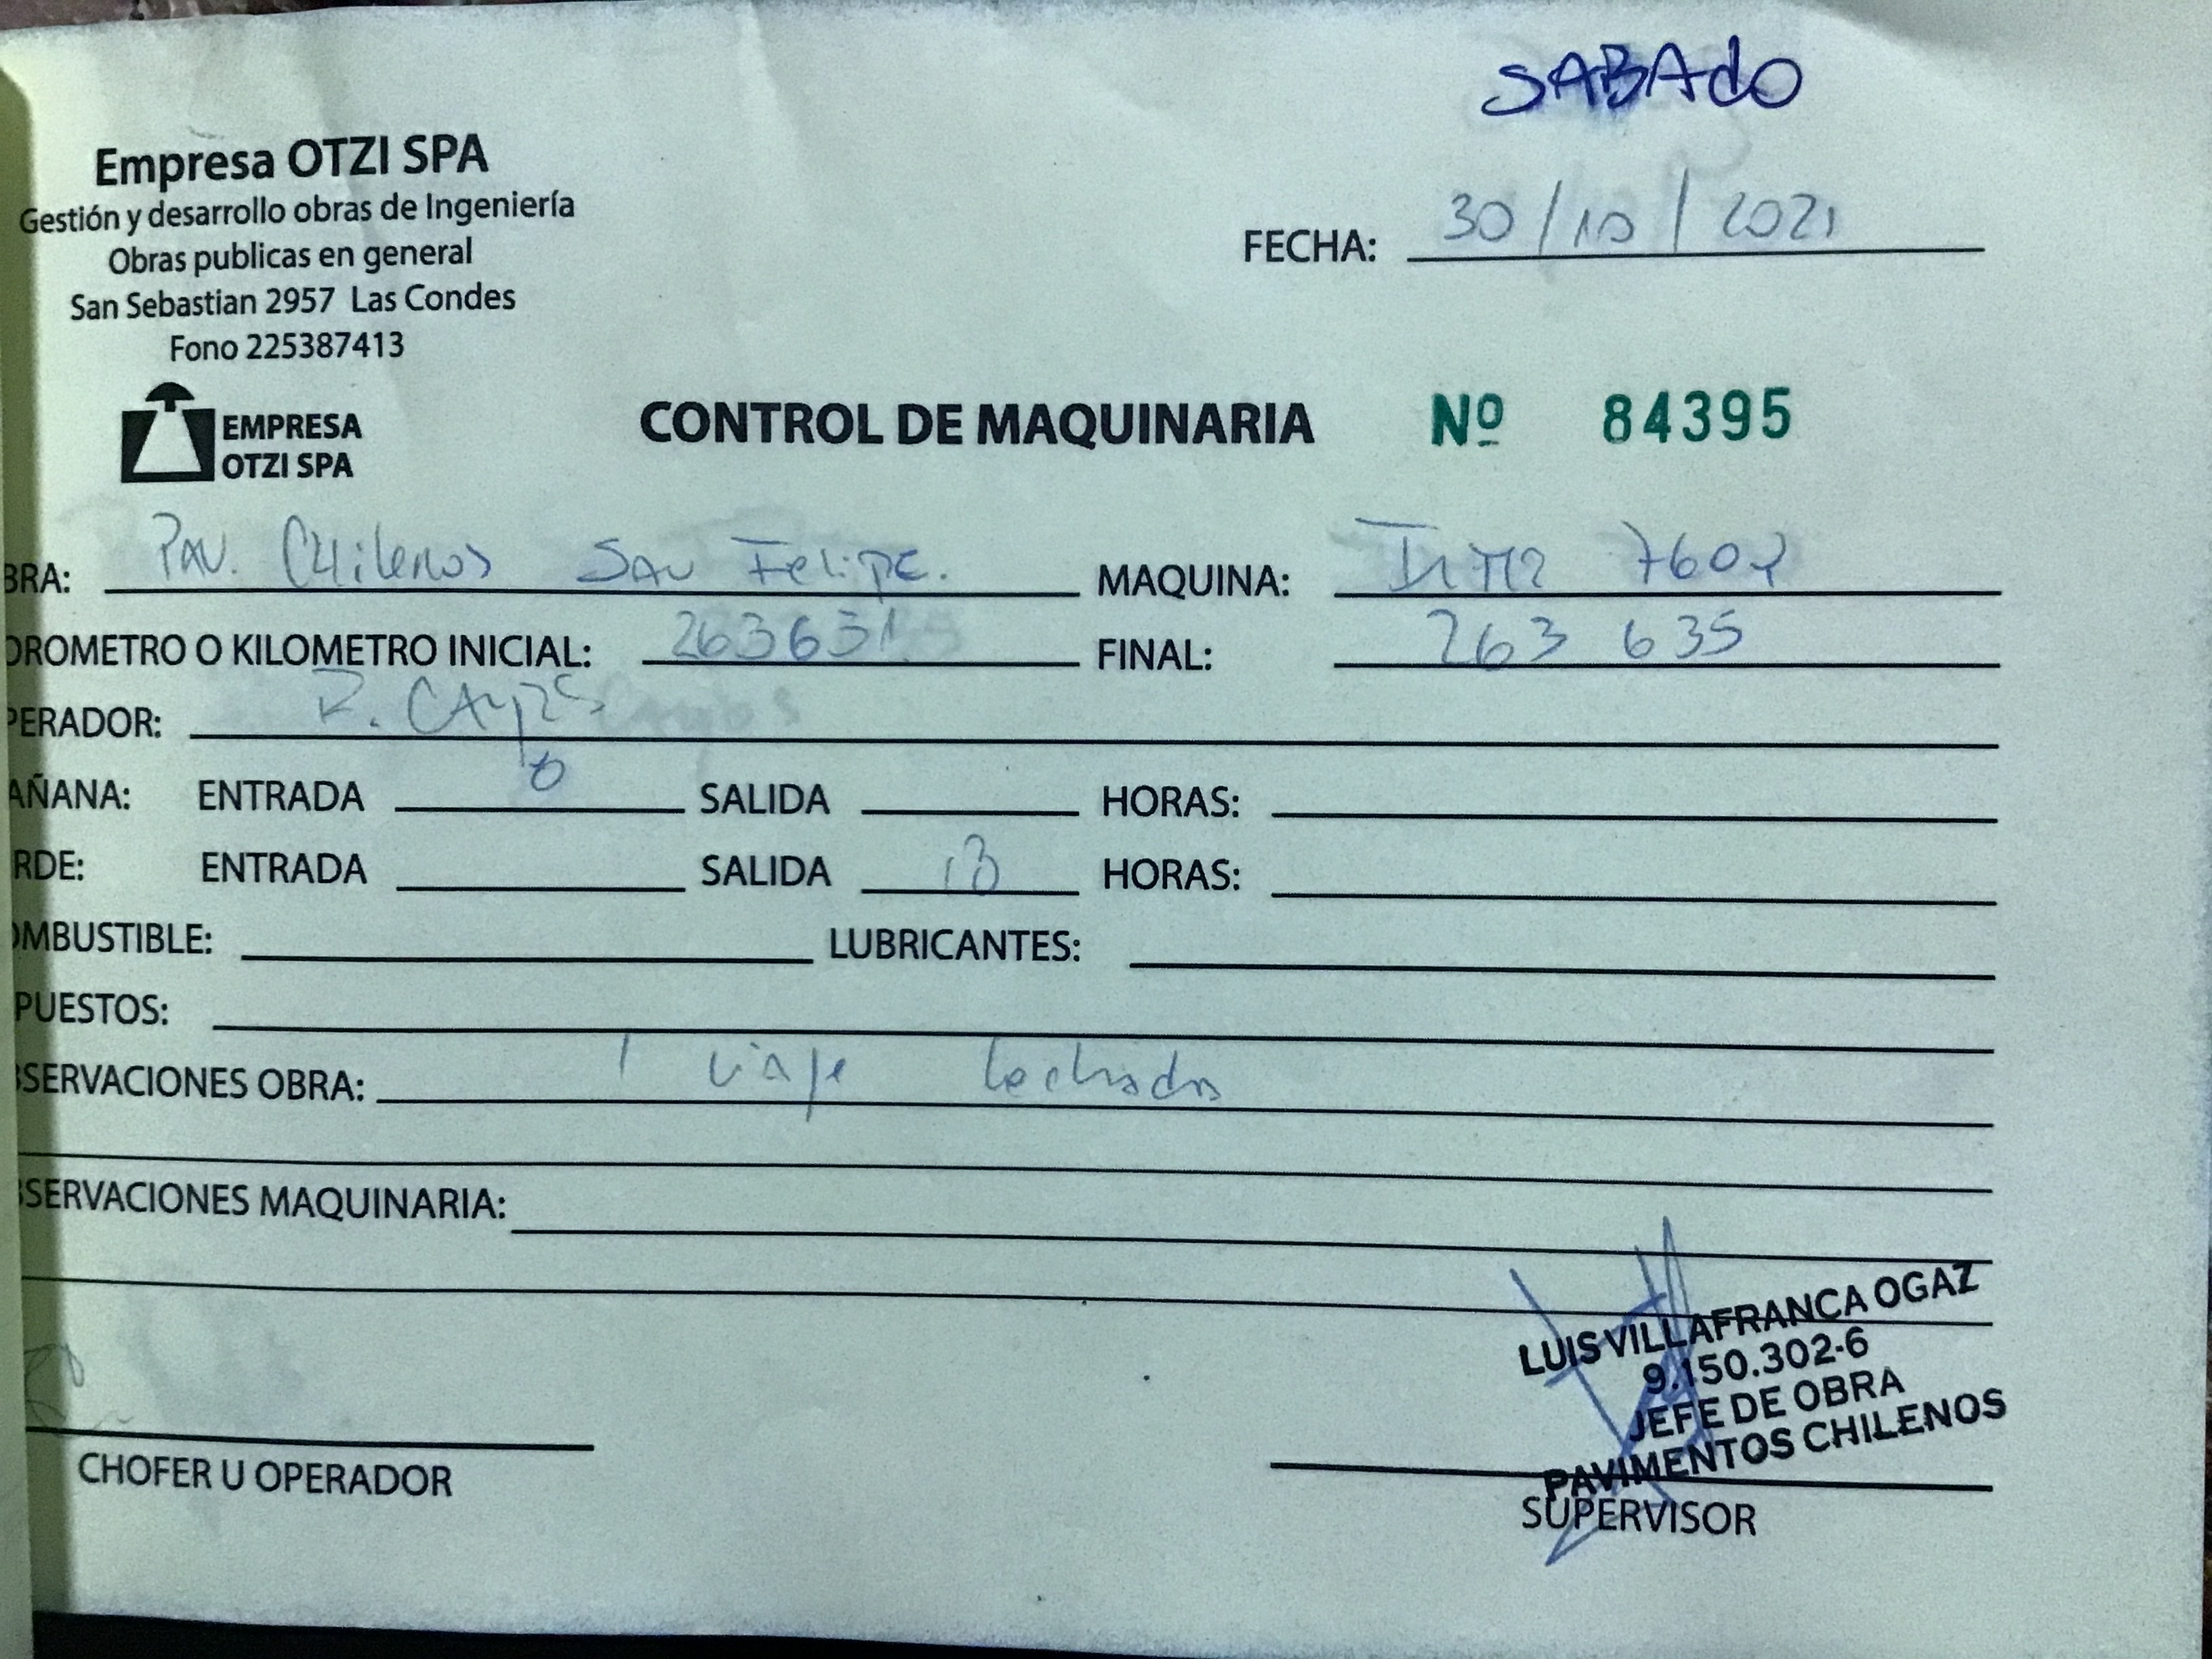 SABAdO
Empresa OTZI SPA
Gestión y desarrollo obras de Ingeniería
Obras publicas en general
San Sebastian 2957 Las Condes
Fono 225387413
FECHA: 30/10/2021
EMPRESA
OTZI SPA
CONTROL DE MAQUINARIA Nº 84395
BRA: Pav. Chilenos San Felipe. MAQUINA:
OROMETRO O KILOMETRO INICIAL: 263631 FINAL: 263 635
PERADOR: R.
AÑANA: ENTRADA 8 SALIDA HORAS:
RDE: ENTRADA SALIDA 13 HORAS:
OMBUSTIBLE: LUBRICANTES:
PUESTOS:
BSERVACIONES OBRA: 1 viaje lechada
BSERVACIONES MAQUINARIA:
LUIS VILLAFRANCA OGAZ
9.150.302-6
JEFE DE OBRA
PAVIMENTOS CHILENOS
CHOFER U OPERADOR
SUPERVISOR